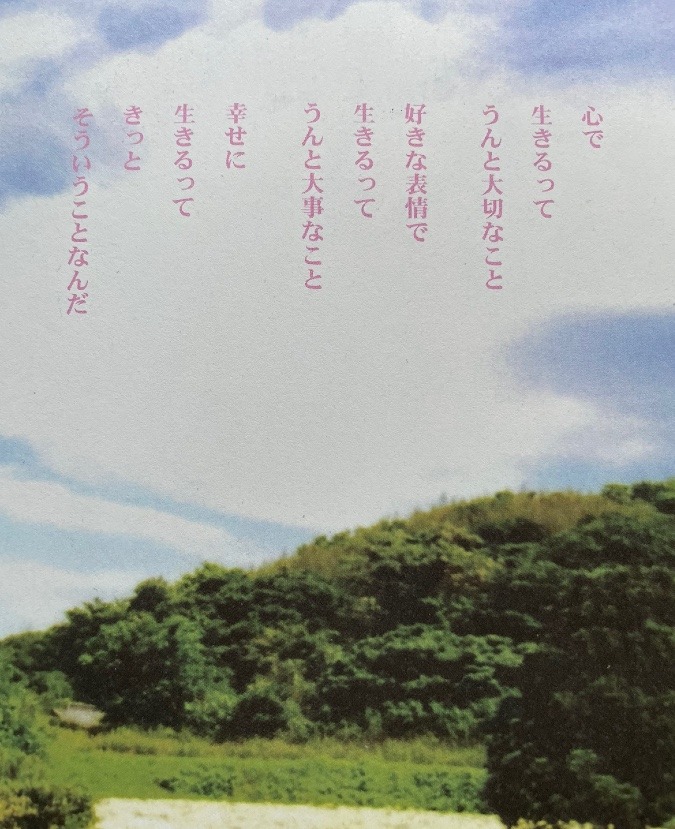 心で
生きるって
うんと大切なこと
好きな表情で
生きるって
うんと大事なこと
幸せに
生きるって
きっと
そういうことなんだ